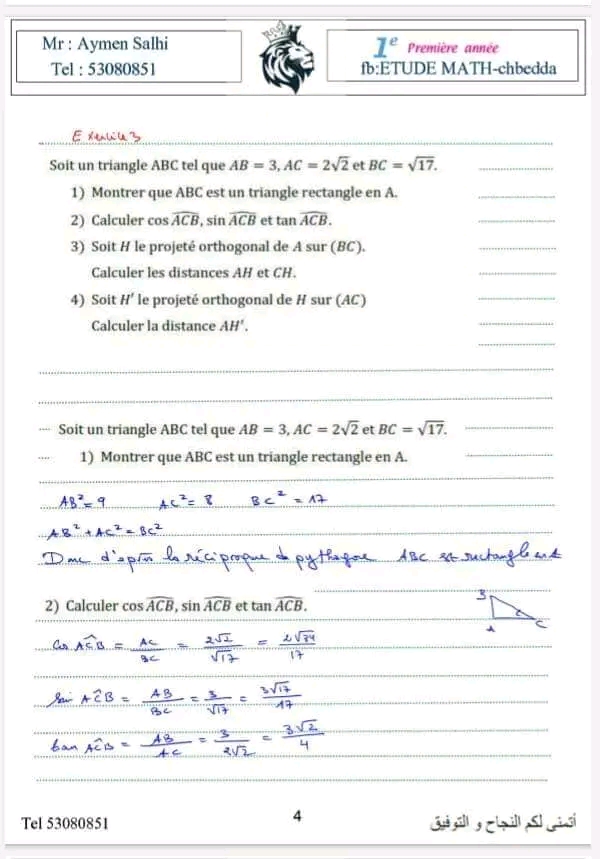 Mr : Aymen Salhi
Tel : 53080851
1e Première année
fb:ETUDE MATH-chbedda
Exercice 3
Soit un triangle ABC tel que AB = 3, AC = 2√2 et BC = √17.
1) Montrer que ABC est un triangle rectangle en A.
2) Calculer cos ACB, sin ACB et tan ACB.
3) Soit H le projeté orthogonal de A sur (BC).
Calculer les distances AH et CH.
4) Soit H' le projeté orthogonal de H sur (AC)
Calculer la distance AH'.
Soit un triangle ABC tel que AB = 3, AC = 2√2 et BC = √17.
1) Montrer que ABC est un triangle rectangle en A.
AB² = 9 AC² = 8 BC² = 17
AB² + AC² = BC²
Donc d'après la réciproque de pythagore ABC est rectangle en A
2) Calculer cos ACB, sin ACB et tan ACB.
B
A C
cos ACB = AC/BC = 2√2/√17 = 2√34/17
sin ACB = AB/BC = 3/√17 = 3√17/17
tan ACB = AB/AC = 3/2√2 = 3√2/4
Tel 53080851
4
أتمنى لكم النجاح و التوفيق